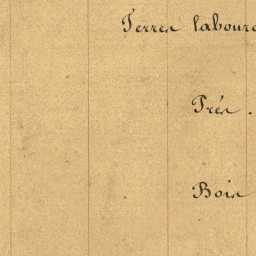 Terres laboura
Prés.
Bois